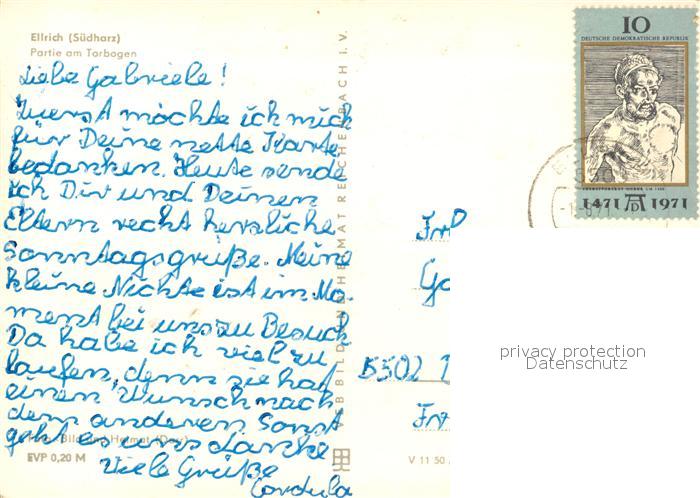 Ellrich (Südharz)
Partie am Torbogen
Liebe Gabriele!
Zuerst möchte ich mich
für Deine nette Karte
bedanken. Heute sende
ich Dir und Deinen
Eltern recht herzliche
Sonntagsgrüße. Meine
kleine Nichte ist im Mo-
ment bei uns zu Besuch
Da habe ich viel zu
laufen, denn sie hat
einen Wunsch nach
dem anderen. Sonst
geht es uns danke.
Viele Grüße
Cordula
Foto: Bild und Heimat (Darr)
EVP 0,20 M
VEB BILD UND HEIMAT REICHENBACH I. V.
V 11 50
10
DEUTSCHE DEMOKRATISCHE REPUBLIK
1471 AD 1971
Frl
Ga
5502
privacy protection
Datenschutz